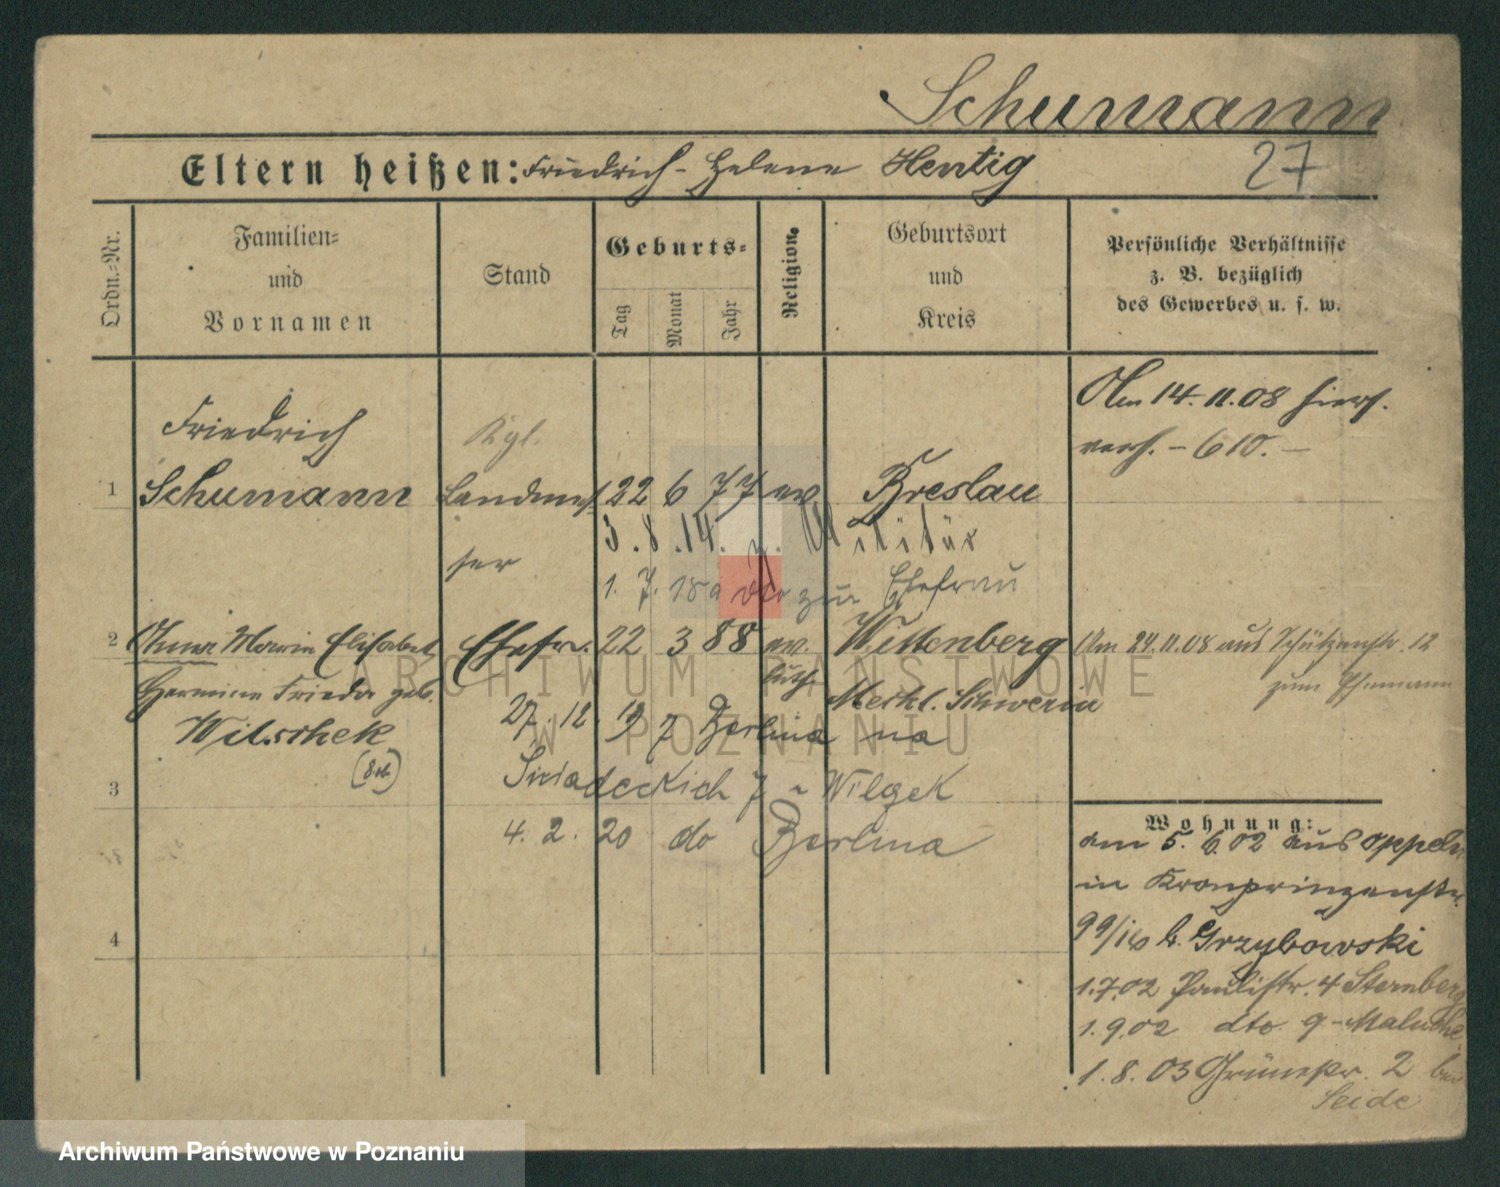 Schumann
Eltern heißen: Friedrich - Helene Hentig
27
Ordn.=Nr.
Familien=
und
Vornamen
Stand
Geburts=
Tag
Monat
Jahr
Religion.
Geburtsort
und
Kreis
Persönliche Verhältnisse
z. B. bezüglich
des Gewerbes u. s. w.
Am 14.11.08 hier
verh. - 610. -
1
Friedrich
Schumann
Kgl.
Landmes
ser
22 6 77 ev.
Breslau
3.8.14. z. Militär
1. 7. 18 zur Ehefrau
2
Anna Marie Elisabet
Hermine Frieda geb.
Wilschek
Ehefr. 22 3 88 ev.
luth.
Wittenberg
Meckl. Schwerin
Am 24.11.08 aus Schützenstr. 12
zum Ehemann
27. 12. 19 7 Berlina na
Śniadeckich 7 Wilczek
3
4. 2. 20 do Berlina
4
Wohnung:
am 5. 6. 02 aus Oppeln
in Kronprinzenstr.
99/ b. Grzybowski
1.7.02 Paulistr. 4 Sternberg
1.9.02 dto 9 -
1.8.03 Grünestr. 2 bei
Seide
ARCHIWUM PAŃSTWOWE
W POZNANIU
Archiwum Państwowe w Poznaniu